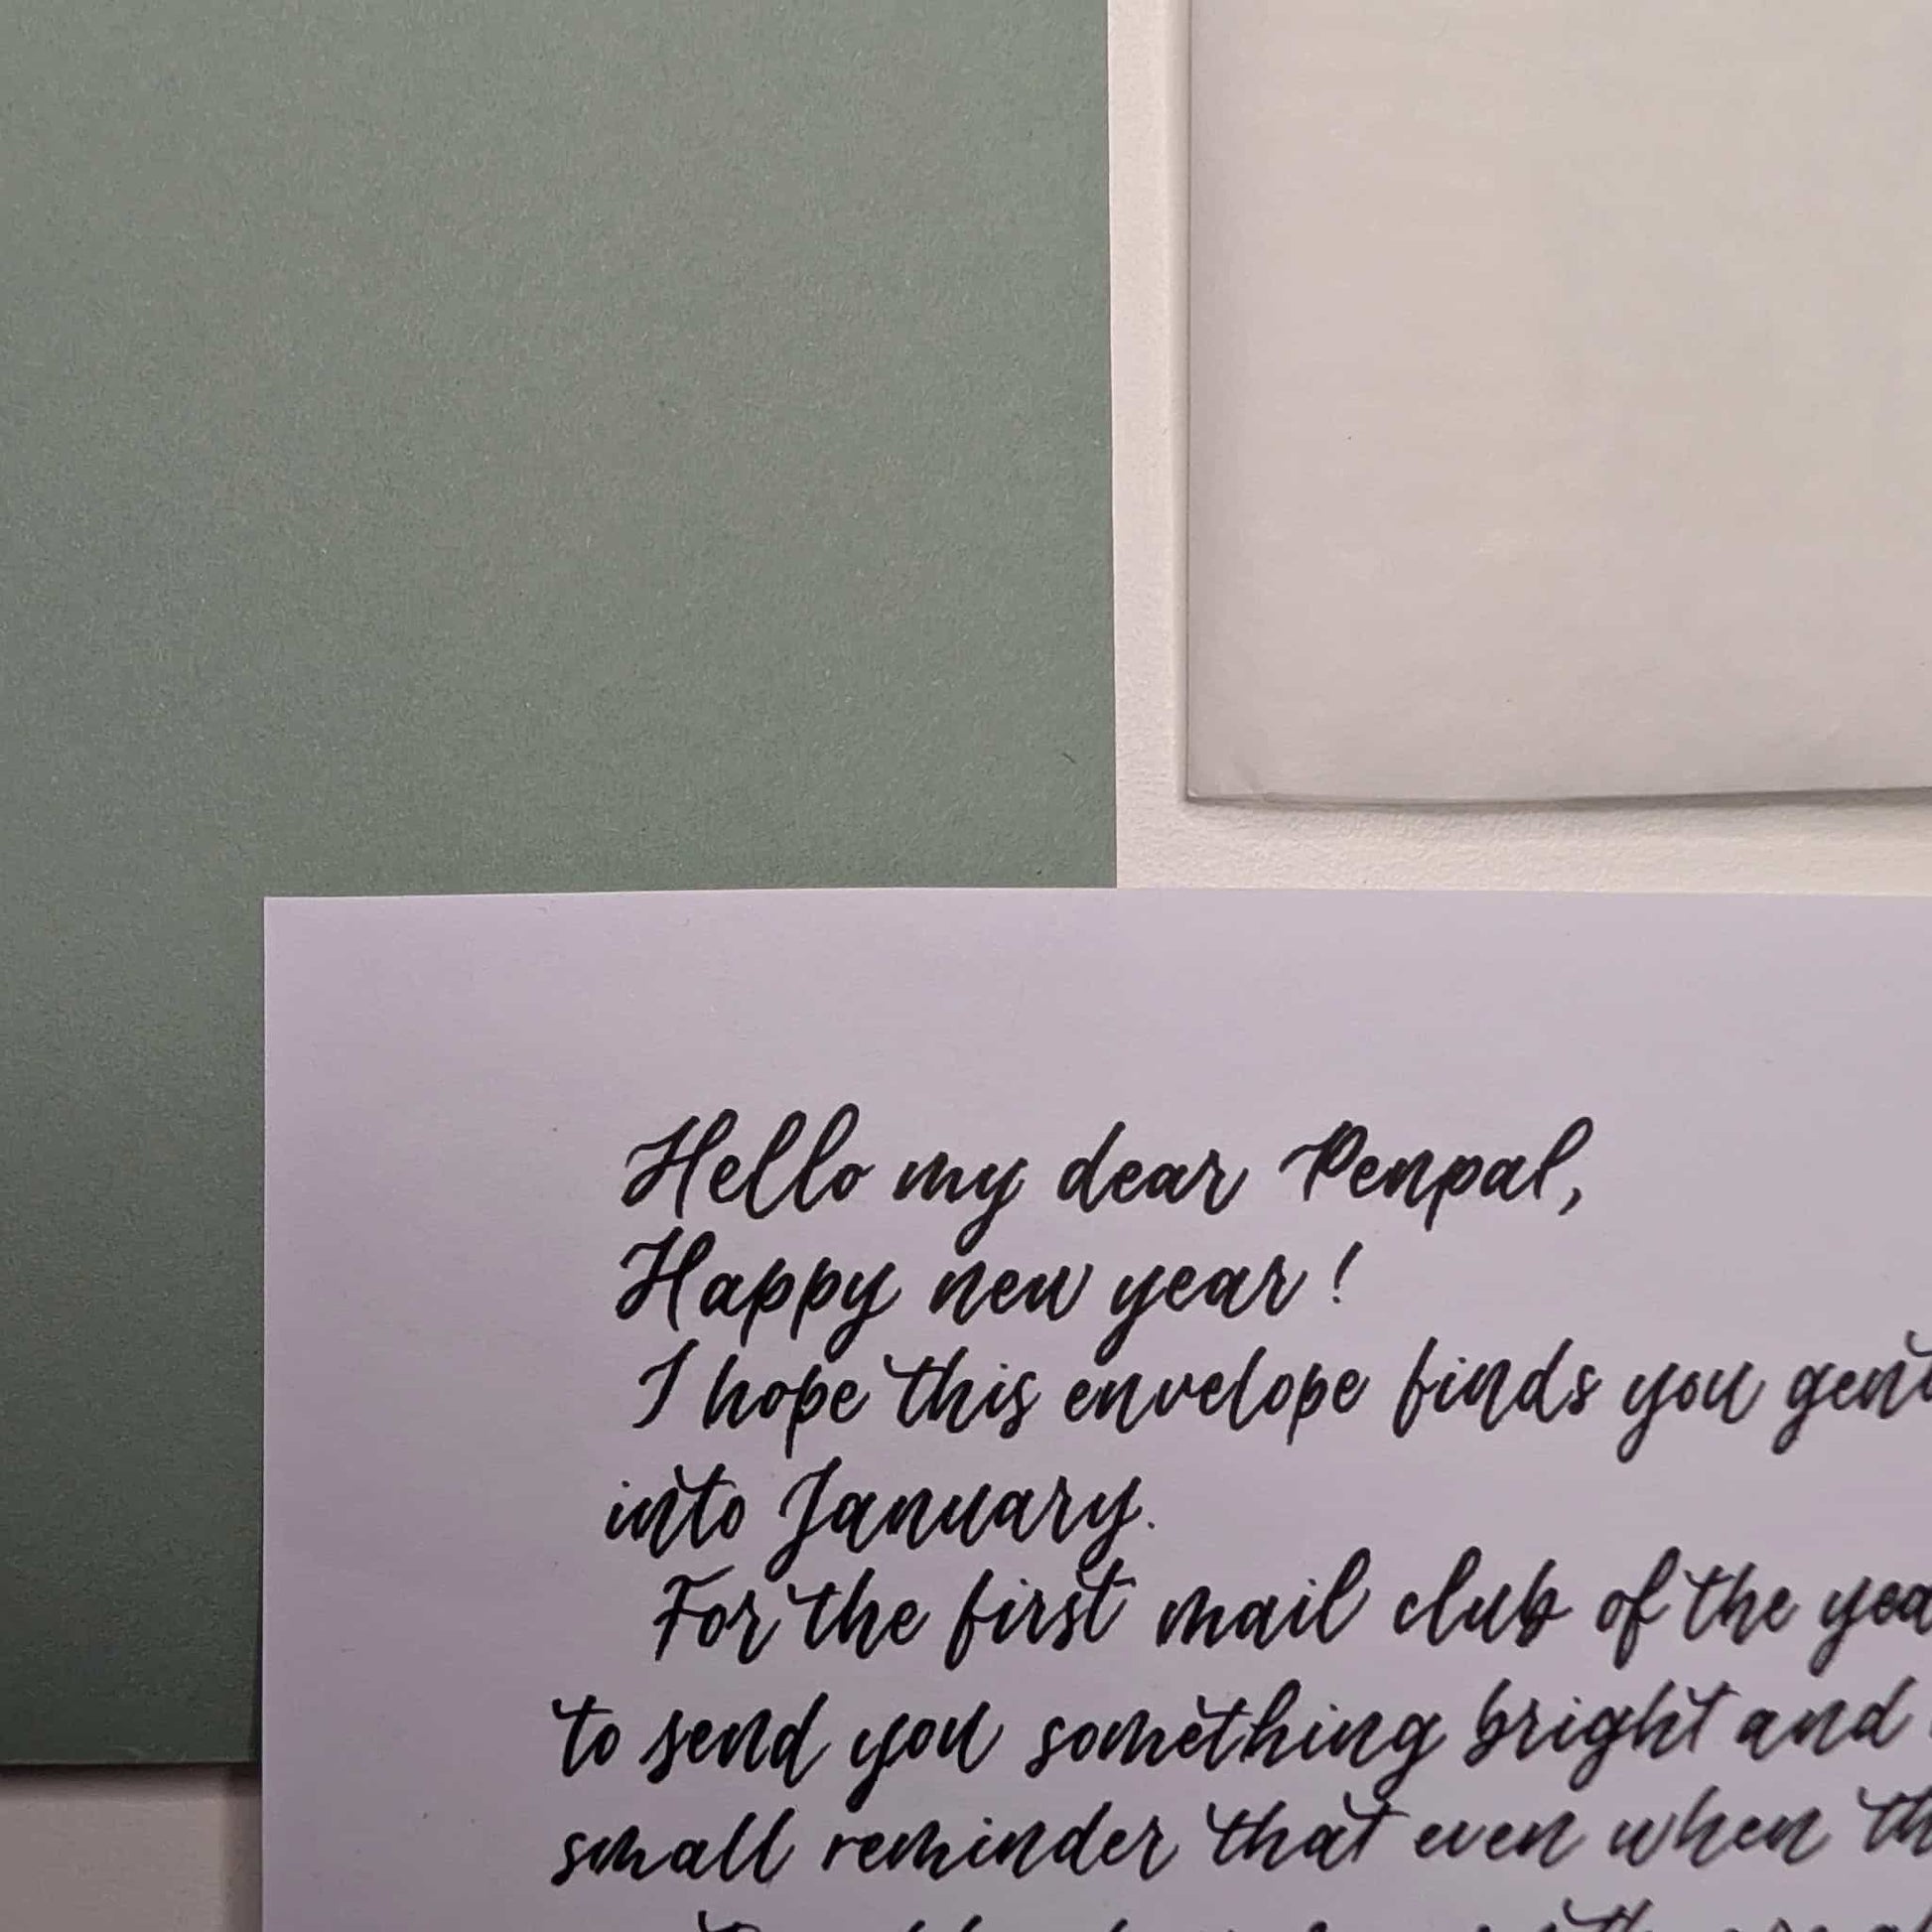 Hello my dear Penpal,
Happy new year!
I hope this envelope finds you
into January.
For the first mail club of the
to send you something bright and
small reminder that even when